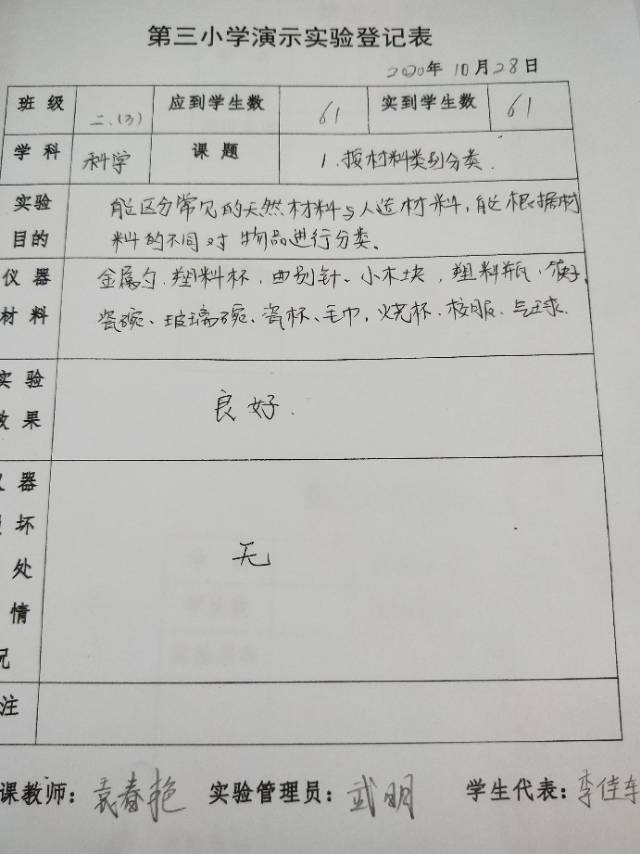 第三小学演示实验登记表
2020年10月28日
班级 二.(3) 应到学生数 61 实到学生数 61
学科 科学 课题 1.按材料类别分类.
实验 能区分常见的天然材料与人造材料,能根据材
目的 料的不同对物品进行分类。
仪器 金属勺.塑料杯,曲别针、小木块,塑料瓶,筷子、
材料 瓷碗、玻璃碗、瓷杯、毛巾,烧杯、校服、气球.
实验
效果 良好.
仪器
坏 无
处
情
况
注
课教师:袁春艳 实验管理员:武明 学生代表:李佳